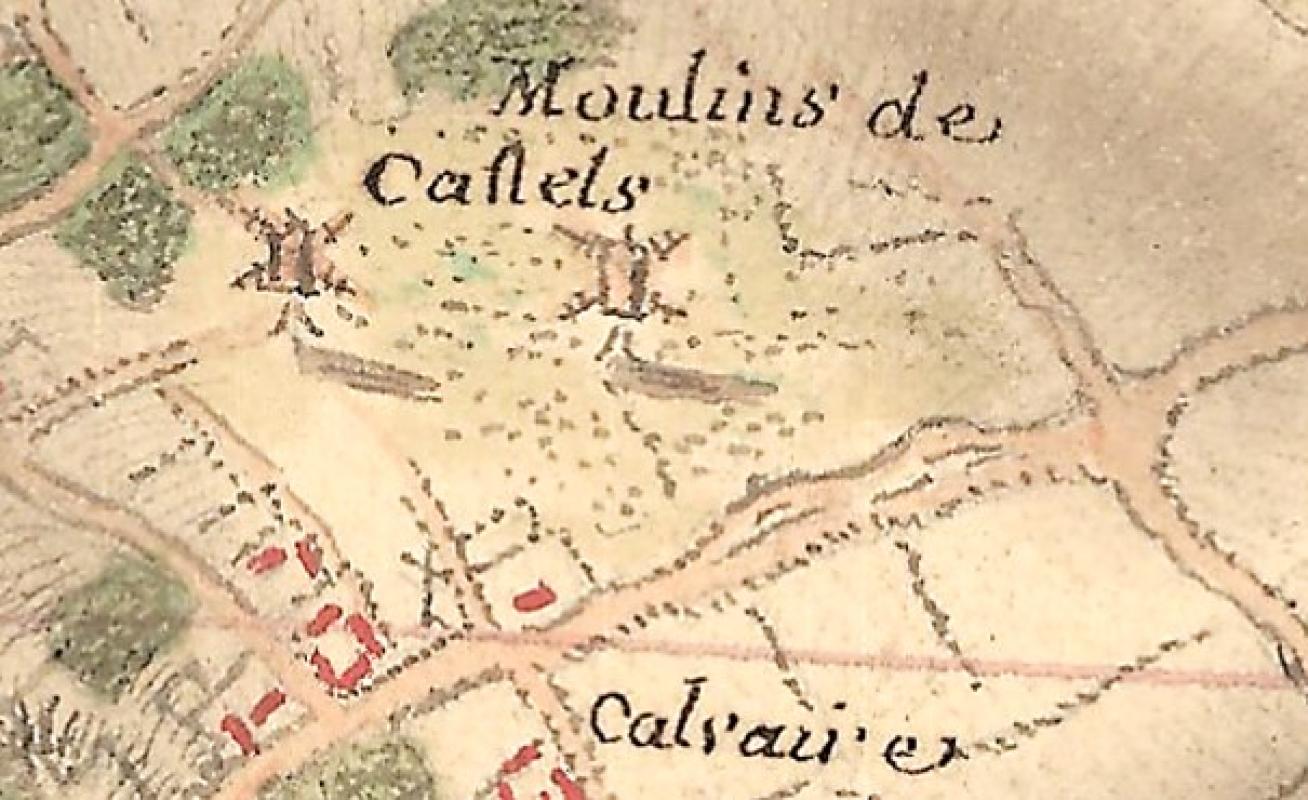 Moulins de
Castels
Calvaire